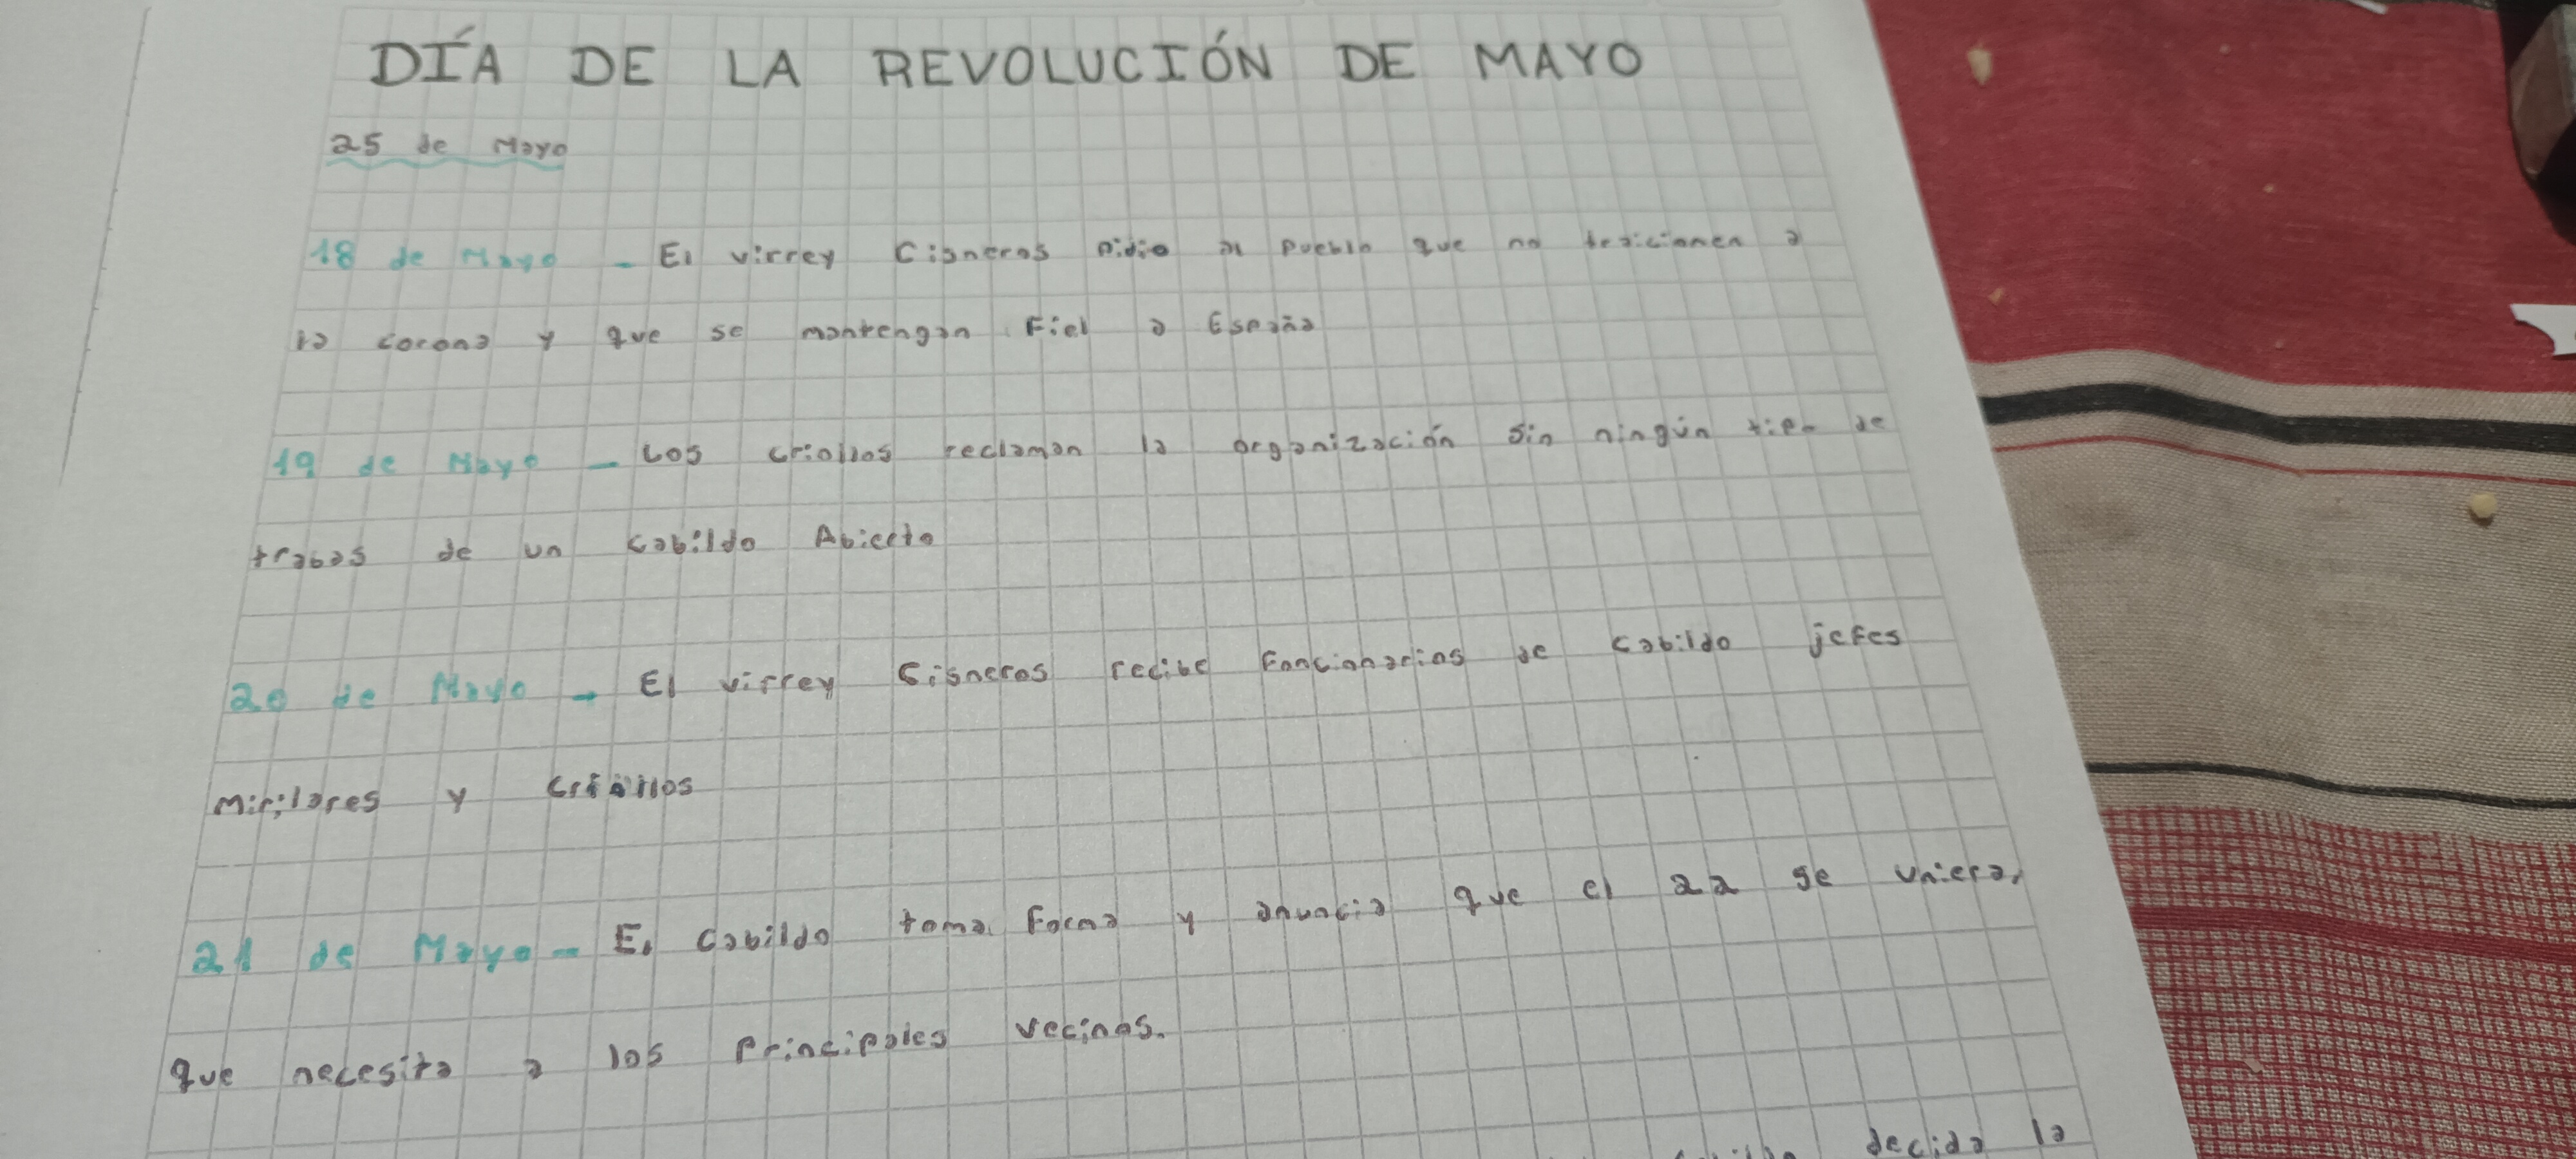 DÍA DE LA REVOLUCIÓN DE MAYO
25 de Mayo
18 de Mayo - El virrey Cisneros Pidio al Pueblo que no traicionen a
la corona y que se mantengan Fiel a España
19 de Mayo - Los criollos reclaman la organización sin ningún tipo de
trabas de un cabildo Abierto
20 de Mayo - El virrey Cisneros recibe Foncionarios de cabildo jefes
Mirilares y criollos
21 de Mayo - El Cabildo toma Forma y anuncia que el 22 se uniera,
que necesita a los Principales vecinos.
decida la